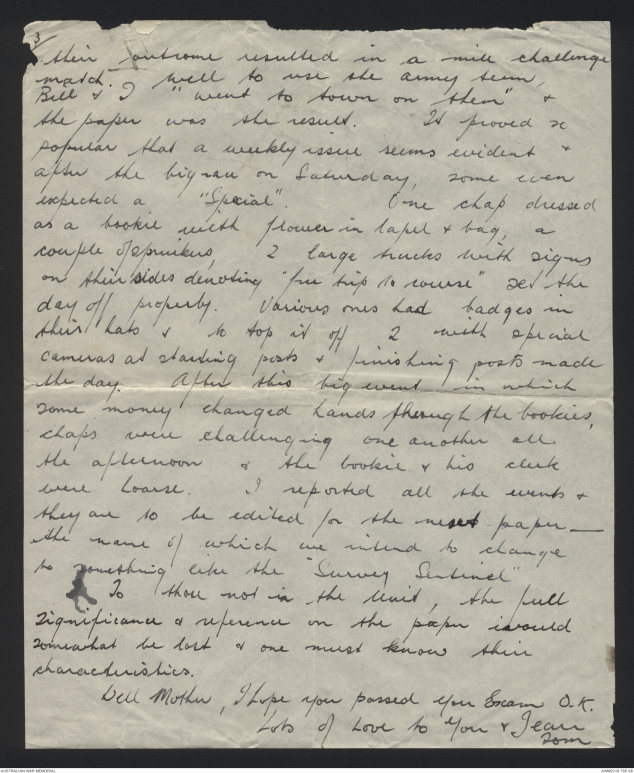 3/
their outcome resulted in a mile challenge
match. Well to use the army term,
Bill & I "went to town on them" &
the paper was the result. It proved so
popular that a weekly issue seems evident &
after the big race on Saturday, some even
expected a "Special". One chap dressed
as a bookie with flower in lapel & bag, a
couple of spruikers, 2 large trucks with signs
on their sides denoting "free trip to course" set the
day off properly. Various ones had badges in
their hats & to top it off 2 with special
cameras at starting posts & finishing posts made
the day. After this big event in which
some money changed hands through the bookies,
chaps were challenging one another all
the afternoon & the bookie & his clerk
were hoarse. I reported all the events &
they are to be edited for the next paper —
the name of which we intend to change
to something like the "Survey Sentinel"
To those not in the Unit, the full
significance & reference on the paper would
somewhat be lost & one must know their
characteristics.
Well Mother, I hope you passed your Exam O.K.
Lots of Love to You & Jean
Tom
AUSTRALIAN WAR MEMORIAL